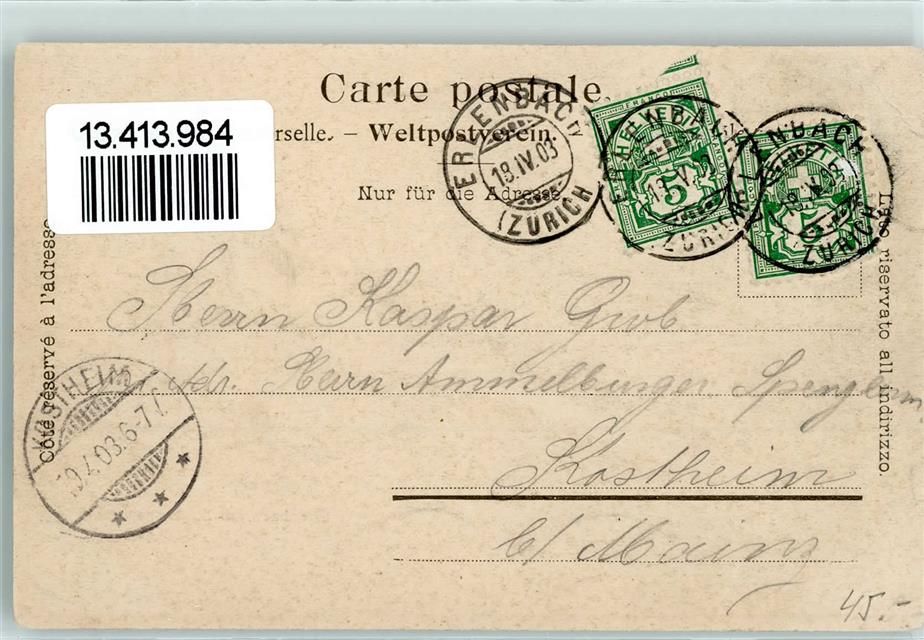 Carte postale.
13.413.984
rselle. – Weltpostverein.
Nur für die Adresse
Côté réservé à l'adresse
Lato riservato all indirizzo.
ERLENBACH
18.IV.03
(ZÜRICH
FRANCO
5
ERLENBACH
(ZÜRICH
ERLENBACH
(ZÜRICH
Herrn Kaspar Grob
Adr. Herrn Ammelburger Spengler
Kostheim
b/ Mainz
KOSTHEIM
19.4.03.6-7
45.-